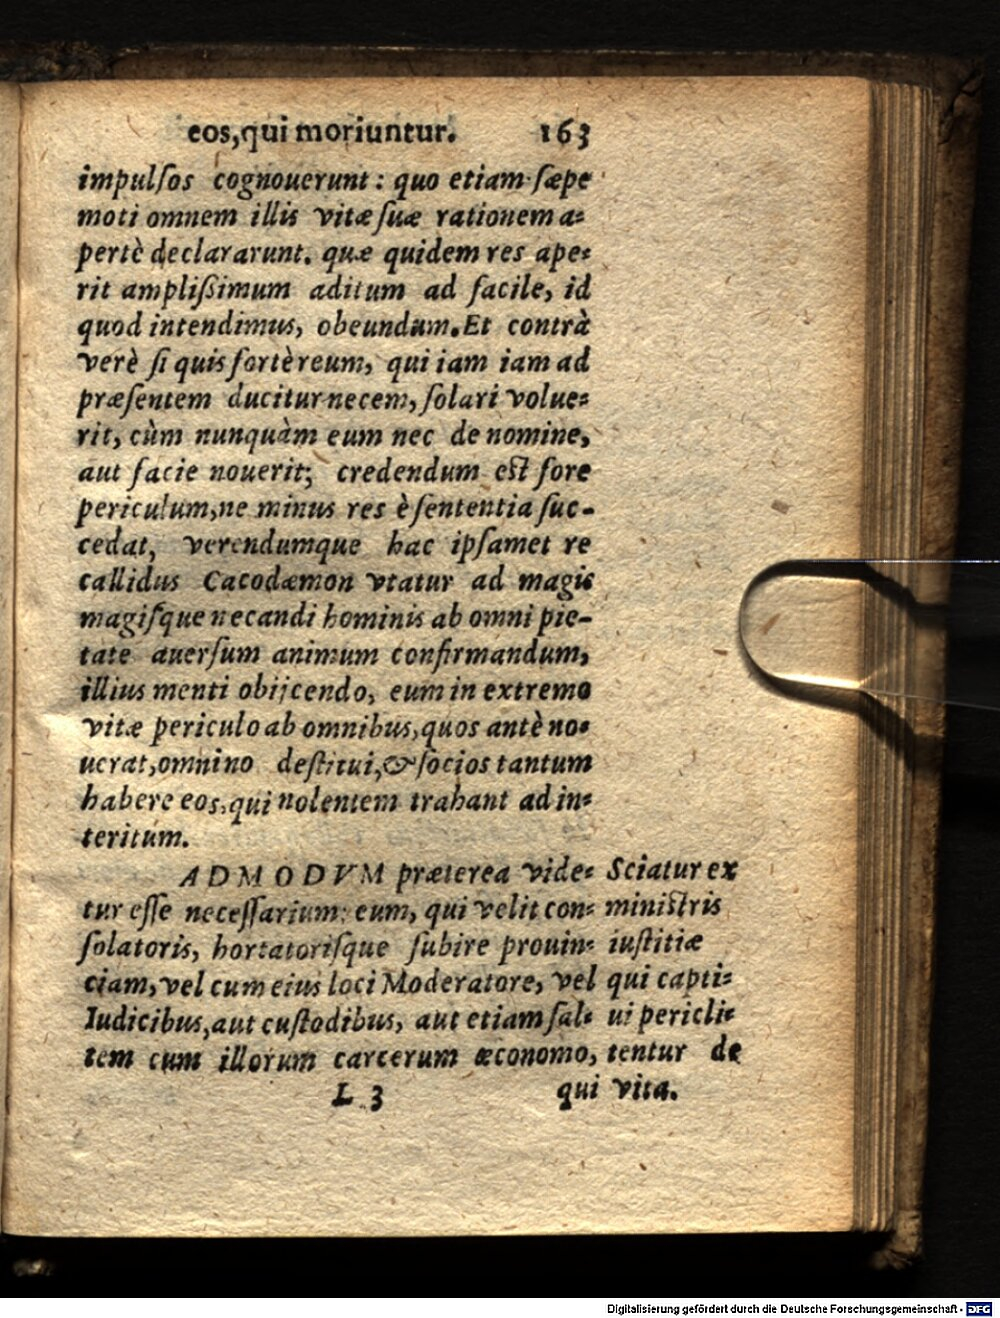 eos,qui moriuntur. 163
impulſos cognouerunt : quo etiam ſæpe
moti omnem illis vitæ ſuæ rationem a-
pertè declararunt. quæ quidem res ape-
rit ampliſsimum aditum ad facile, id
quod intendimus, obeundum. Et contrà
verè ſi quis fortè reum, qui iam iam ad
præſentem ducitur necem, ſolari volue-
rit, cùm nunquàm eum nec de nomine,
aut facie nouerit; credendum eſt fore
periculum, ne minus res è ſententia ſuc-
cedat, verendumque hac ipſamet re
callidus Cacodæmon vtatur ad magis
magiſque necandi hominis ab omni pie-
tate auerſum animum confirmandum,
illius menti obijcendo, eum in extremo
vitæ periculo ab omnibus, quos antè no-
uerat, omnino deſtitui, & ſocios tantum
habere eos, qui nolentem trahant ad in-
teritum.
ADMODVM præterea vide-
tur eſſe neceſſarium: eum, qui velit con-
ſolatoris, hortatoriſque ſubire prouin-
ciam, vel cum eius loci Moderatore, vel
Iudicibus, aut cuſtodibus, aut etiam ſal-
tem cum illorum carcerum œconomo,
L 3 qui
Sciatur ex
miniſtris
iuſtitiæ
qui capti-
ui pericli-
tentur de
vita.
Digitalisierung gefördert durch die Deutsche Forschungsgemeinschaft - DFG